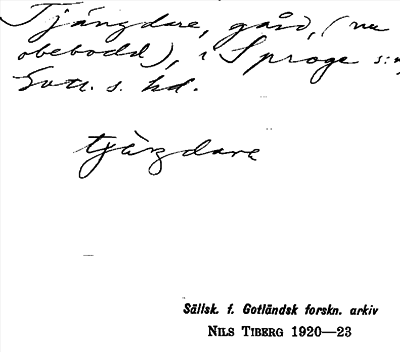 Tjängdare, gård, (nu
obebodd), i Sproge s:n,
Gotl. s. hd.
tjängdare
Sällsk. f. Gotländsk forskn. arkiv
NILS TIBERG 1920—23